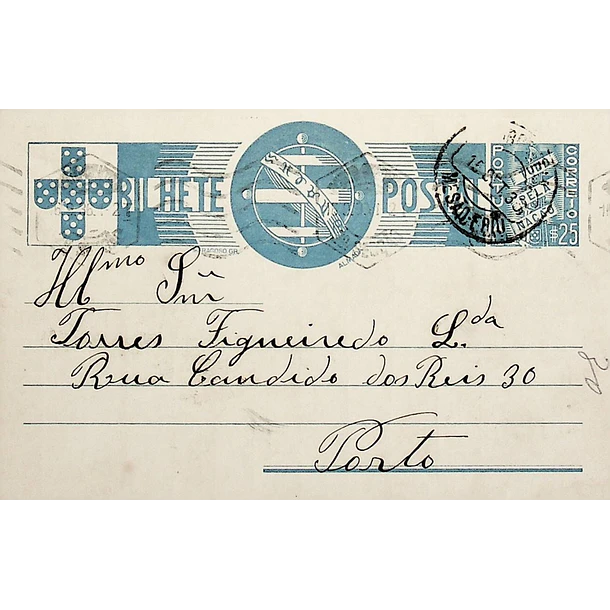 BILHETE POS
PORTU
CORREIO
$25
Illmo Snr
Torres Figueiredo L.da
Rua Candido dos Reis 30
Porto